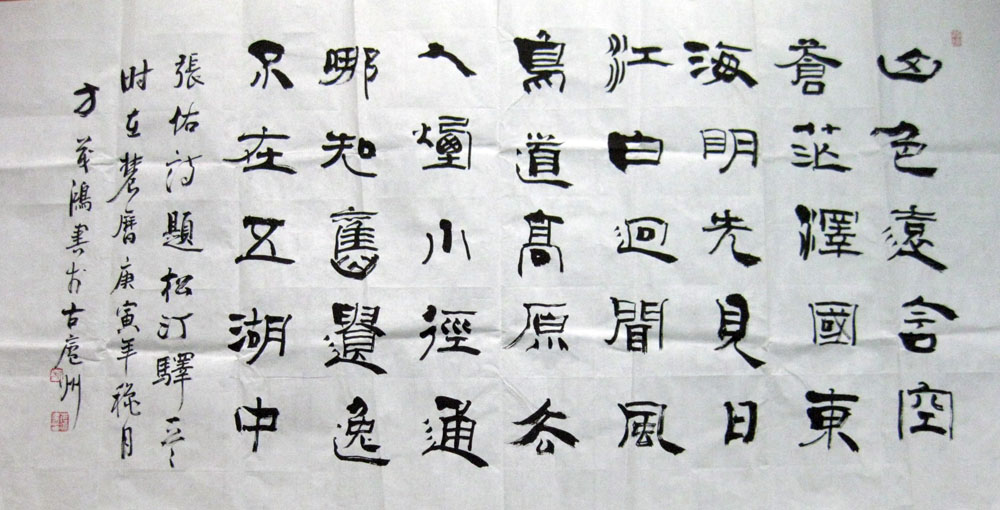 山色遠含空
蒼茫澤國東
海明先見日
江白迥聞風
鳥道高原去
人煙小徑通
哪知舊遺逸
不在五湖中
張佑詩題松汀驛
时在農曆庚寅年穐月
方茂鴻書於古廬州